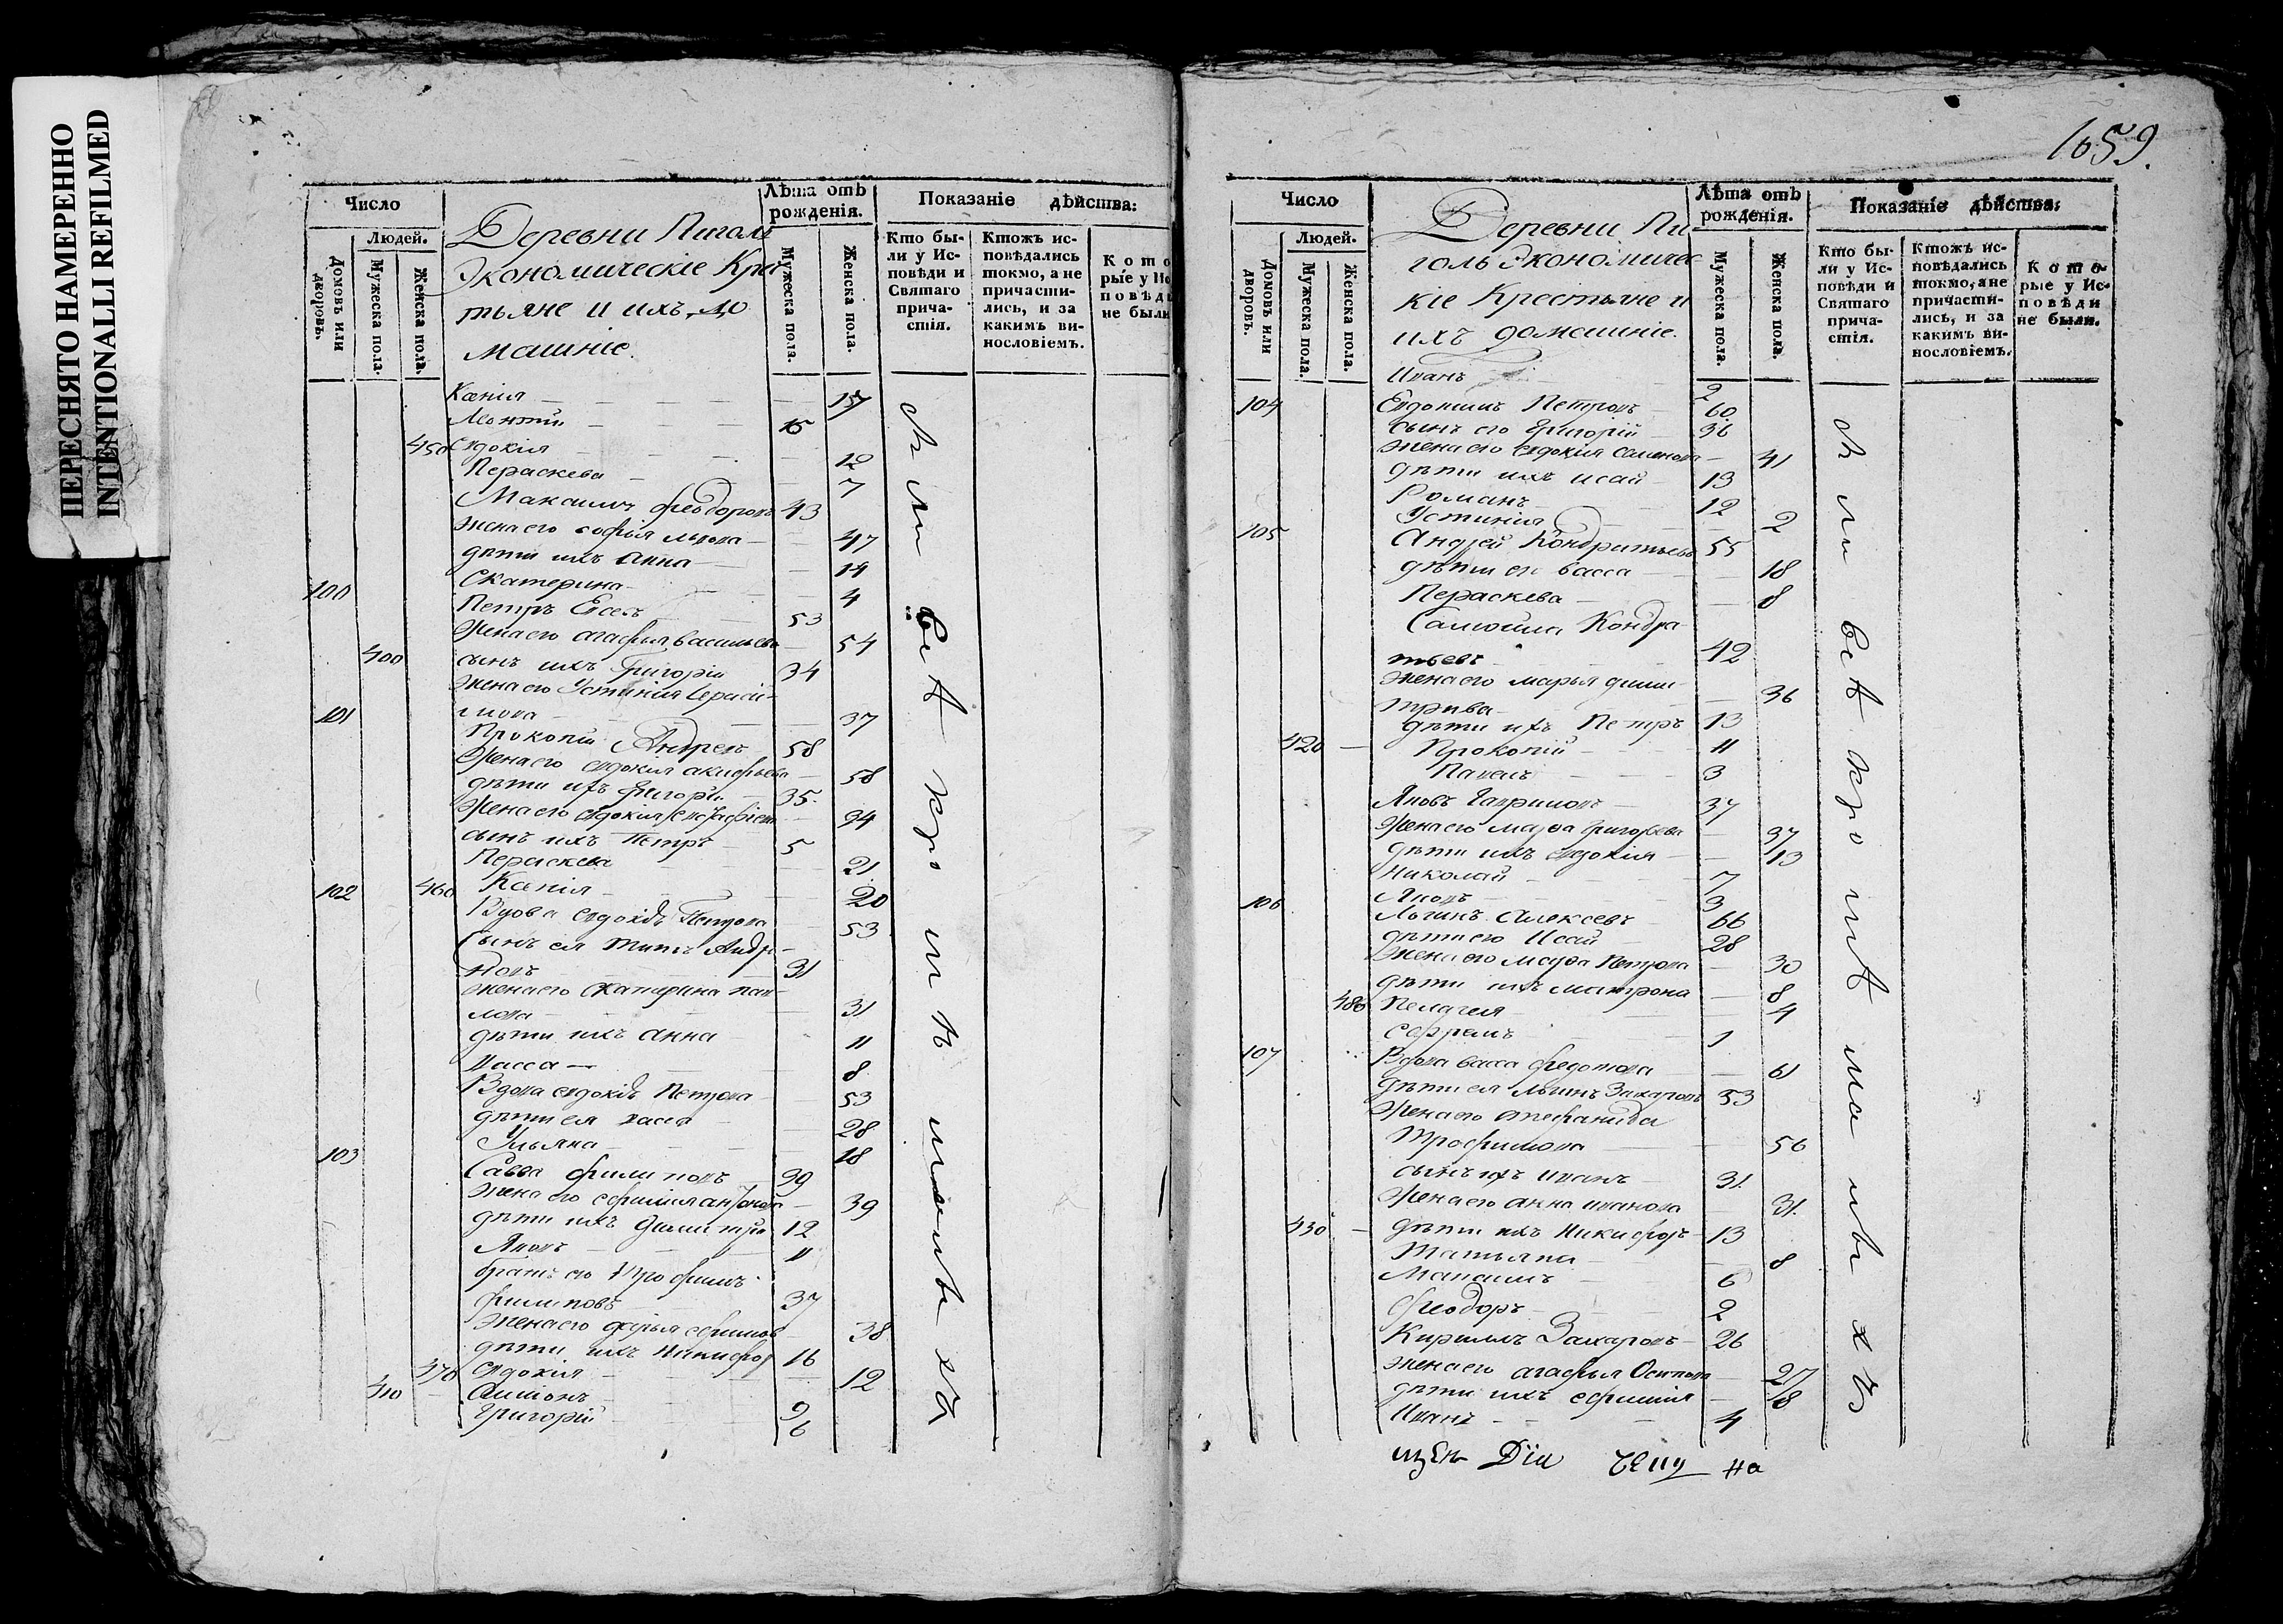 ПЕРЕСНЯТО НАМЕРЕННО
INTENTIONALLI REFILMED
Число
Людей.
Домовъ или дворовъ.
Мужеска пола.
Женска пола.
Деревни Пиголь
Экономическіе Кре
тьяне и ихъ до
машніе.
Лѣта отъ рожденія.
Мужеска пола.
Женска пола.
Показаніе дѣйства:
Кто бы-
ли у Ис-
повѣди и
Святаго
прича-
стія.
Ктожъ ис-
повѣдались
токмо, а не
причасти-
лись, и за
какимъ ви-
нословіемъ.
К о т о
рые у Ис
п о в ѣ д и
не были
Ксенія 17
Леонтій 15
450 Евдокія 12
Пераскева 7
Максимъ Феодоровъ 43
жена его софія 47
дѣти ихъ Анна 14
Екатерина 4
100 Петръ 53
жена его агафья васильева 54
400 сынъ ихъ Григорій 34
жена его Устинія Гераси-
мова 37
101 Прокопій Андреевъ 58
Жена его евдокія 58
дѣти ихъ Григорій 35
Жена его евдокія 34
сынъ ихъ Петръ 5
Пераскева 21
460 Ксенія 20
102 Вдова Петрова 53
Сынъ ея Титъ Андре
новъ 31
жена его екатерина пав-
лова 31
дѣти ихъ анна 11
васса 8
Вдова Петрова 53
дѣти ея васса 28
Ульяна 18
103 Савва филиповъ 39
жена его ефимія антонова 39
дѣти ихъ Димитрій 12
Яковъ 11
братъ его Трофимъ
филиповъ 37
жена его дарья ефимов 38
дѣти ихъ Никифор 16
470 Евдокія 12
410 Симіонъ 9
Григорій 6
1659.
Число
Людей.
Домовъ или дворовъ.
Мужеска пола.
Женска пола.
Деревни Пи-
голь Экономичес-
кіе Крестьяне и
ихъ домашніе.
Лѣта отъ рожденія.
Мужеска пола.
Женска пола.
Показаніе дѣйства:
Кто бы-
ли у Ис-
повѣди и
Святаго
прича-
стія.
Ктожъ ис-
повѣдались
токмо, а не
причасти-
лись, и за
какимъ ви-
нословіемъ.
К о т о-
рые у Ис-
п о в ѣ д и
не были.
Иванъ 2
104 Евдокимъ Петровъ 60
сынъ его Григорій 36
жена его евдокія семенова 41
дѣти ихъ исай 13
Романъ 12
Устинія 2
105 Андрей Кондратьевъ 55
дѣти его васса 18
Пераскева 8
Самойла Кондра
тьевъ 42
жена его марья дими-
трива 36
дѣти ихъ Петръ 13
420 Прокопій 11
Павелъ 3
Яковъ Гавриловъ 37
Жена его мавра григорьева 37
дѣти ихъ евдокія 13
Николай 7
Яковъ 3
106 Логинъ Алексеевъ 66
дѣти его Исай 28
Жена его Мавра Петрова 30
дѣти ихъ матрона 8
480 Пелагея 4
Ефремъ 1
107 Вдова васса федотова 61
дѣти ея Захаровъ 53
Жена его стефанида
Трофимова 56
сынъ ихъ иванъ 31
Жена его анна иванова 31
430 дѣти ихъ Никифоръ 13
Татьяна 8
Максимъ 6
Феодоръ 2
Кирилъ Захаровъ 26
жена его агафья Осипова 27
дѣти ихъ ефимія 8
Иванъ 4